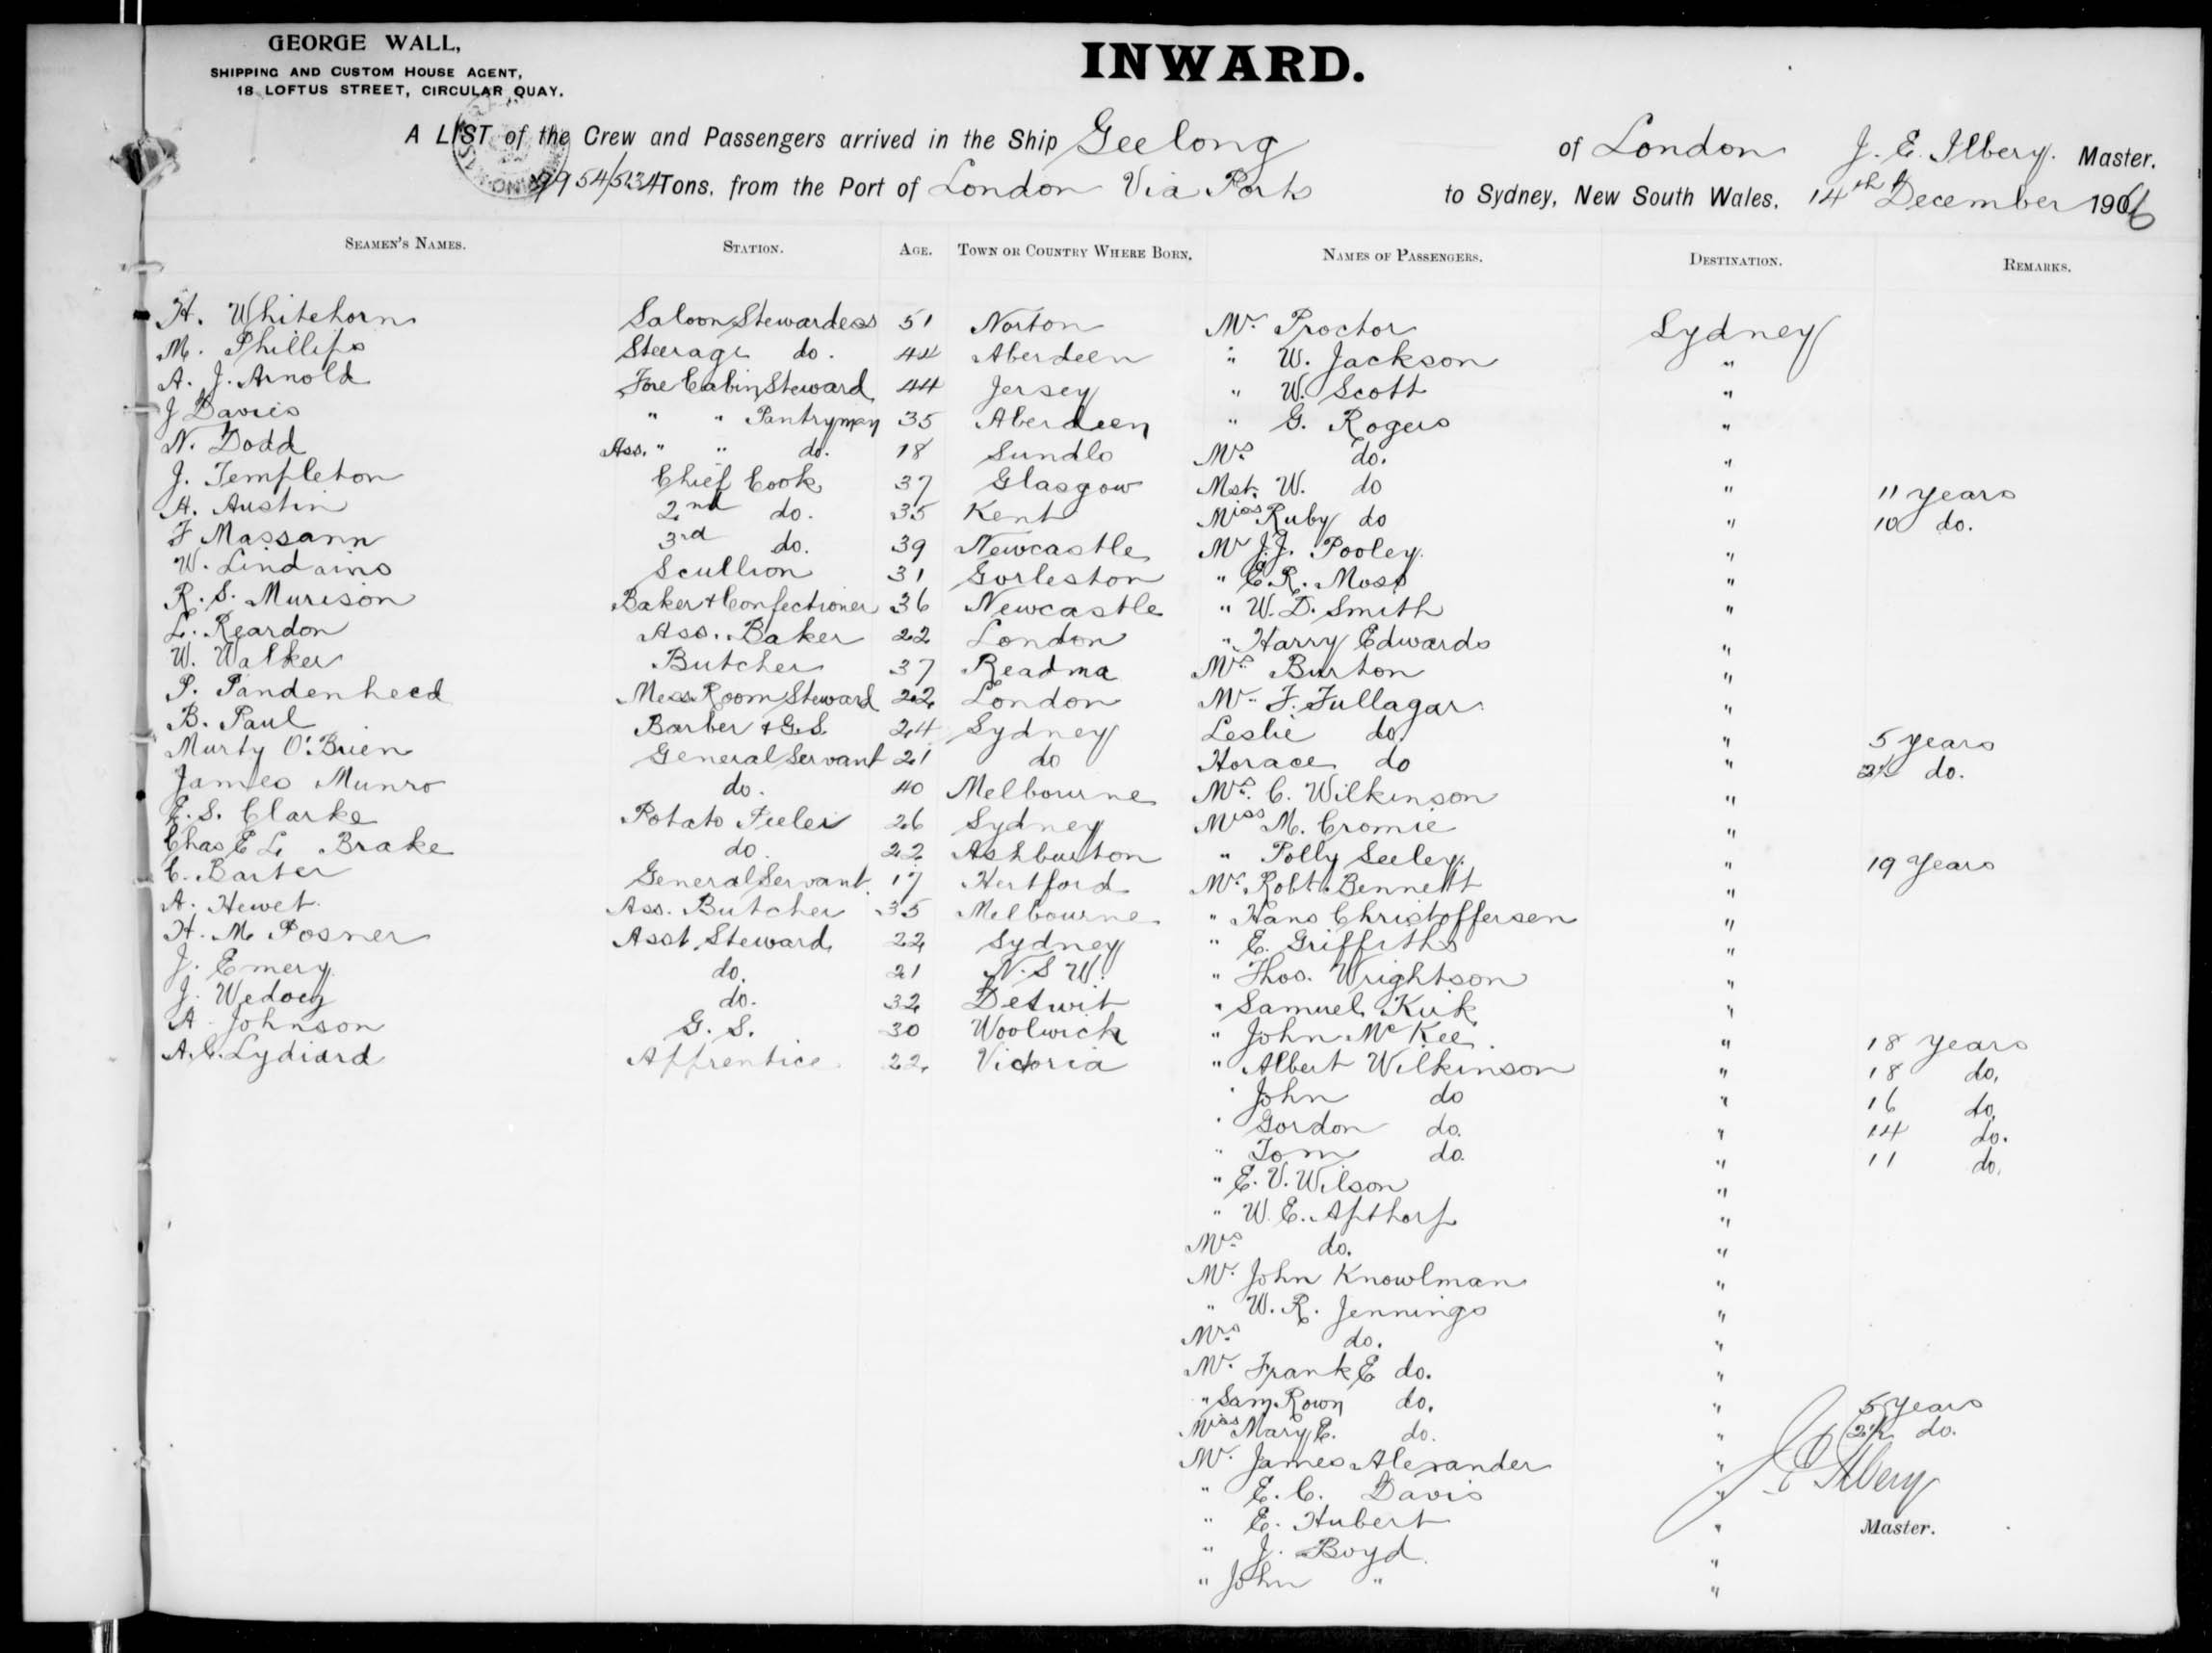 GEORGE WALL,
SHIPPING AND CUSTOM HOUSE AGENT,
18 LOFTUS STREET, CIRCULAR QUAY.
INWARD.
A LIST of the Crew and Passengers arrived in the Ship Geelong of London J. E. Ilbery. Master.
Tons, from the Port of London Via Ports to Sydney, New South Wales, 14th December 1906
SEAMEN'S NAMES. STATION. AGE. TOWN OR COUNTRY WHERE BORN. NAMES OF PASSENGERS. DESTINATION. REMARKS.
H. Whitehorn Saloon Stewardess 51 Norton Mr. Proctor Sydney
M. Phillips Steerage do. 44 Aberdeen " W. Jackson "
A. J. Arnold Fore Cabin Steward 44 Jersey " W. Scott "
J Davies " " Pantryman 35 Aberdeen " G. Rogers "
N. Dodd Ass. " " do. 18 Sundlo Mrs. do. "
J. Templeton Chief Cook 37 Glasgow Mst. W. do " 11 years
A. Austin 2nd do. 35 Kent Miss Ruby do " 10 do.
F Massann 3rd do. 39 Newcastle Mr J.J. Pooley. "
W. Lindains Scullion 31 Gorleston " E. R. Moss "
R. S. Murison Baker & Confectioner 36 Newcastle " W. D. Smith "
L. Reardon Ass. Baker 22 London " Harry Edwards "
W. Walker Butcher 37 Readma Mrs. Burton "
P. Pandenheed Mess Room Steward 22 London Mr. F. Fullagar "
B. Paul Barber & G.S. 24 Sydney Leslie do. " 5 years
Murty O'Brien General Servant 21 do Horace do " do.
James Munro do. 40 Melbourne Mrs. C. Wilkinson "
E. S. Clarke Potato Peeler 26 Sydney Miss M. Cromie "
Chas E L Brake do. 22 Ashburton " Polly Seeley. " 19 years
C. Barter General Servant. 17 Hertford Mr. Robt. Bennett "
A. Hewet. Ass. Butcher 35 Melbourne " Hans Christoffersen "
H. M. Posner Asst Steward 22 Sydney " E. Griffiths "
J. Emery do. 21 N.S.W. " Thos. Wrightson "
J. do. 32 Detroit " Samuel Kirk "
A Johnson G. S. 30 Woolwich " John McKee. " 18 years
A.C. Lydiard Apprentice 22 Victoria " Albert Wilkinson " 18 do.
" John do " 16 do.
" Gordon do. " 14 do.
" Tom do. " 11 do.
" E. V. Wilson "
" W. E. Apthorp "
Mrs. do. "
Mr. John Knowlman "
" W. R. Jennings "
Mrs. do. "
Mr. Frank E do. "
" Sam Rown do. " 5 years
Miss Mary E. do. " 2½ do.
Mr. James Alexander "
" E. C. Davis " J E Ilbery
" E. Hubert " Master.
" J. Boyd. "
" John " "